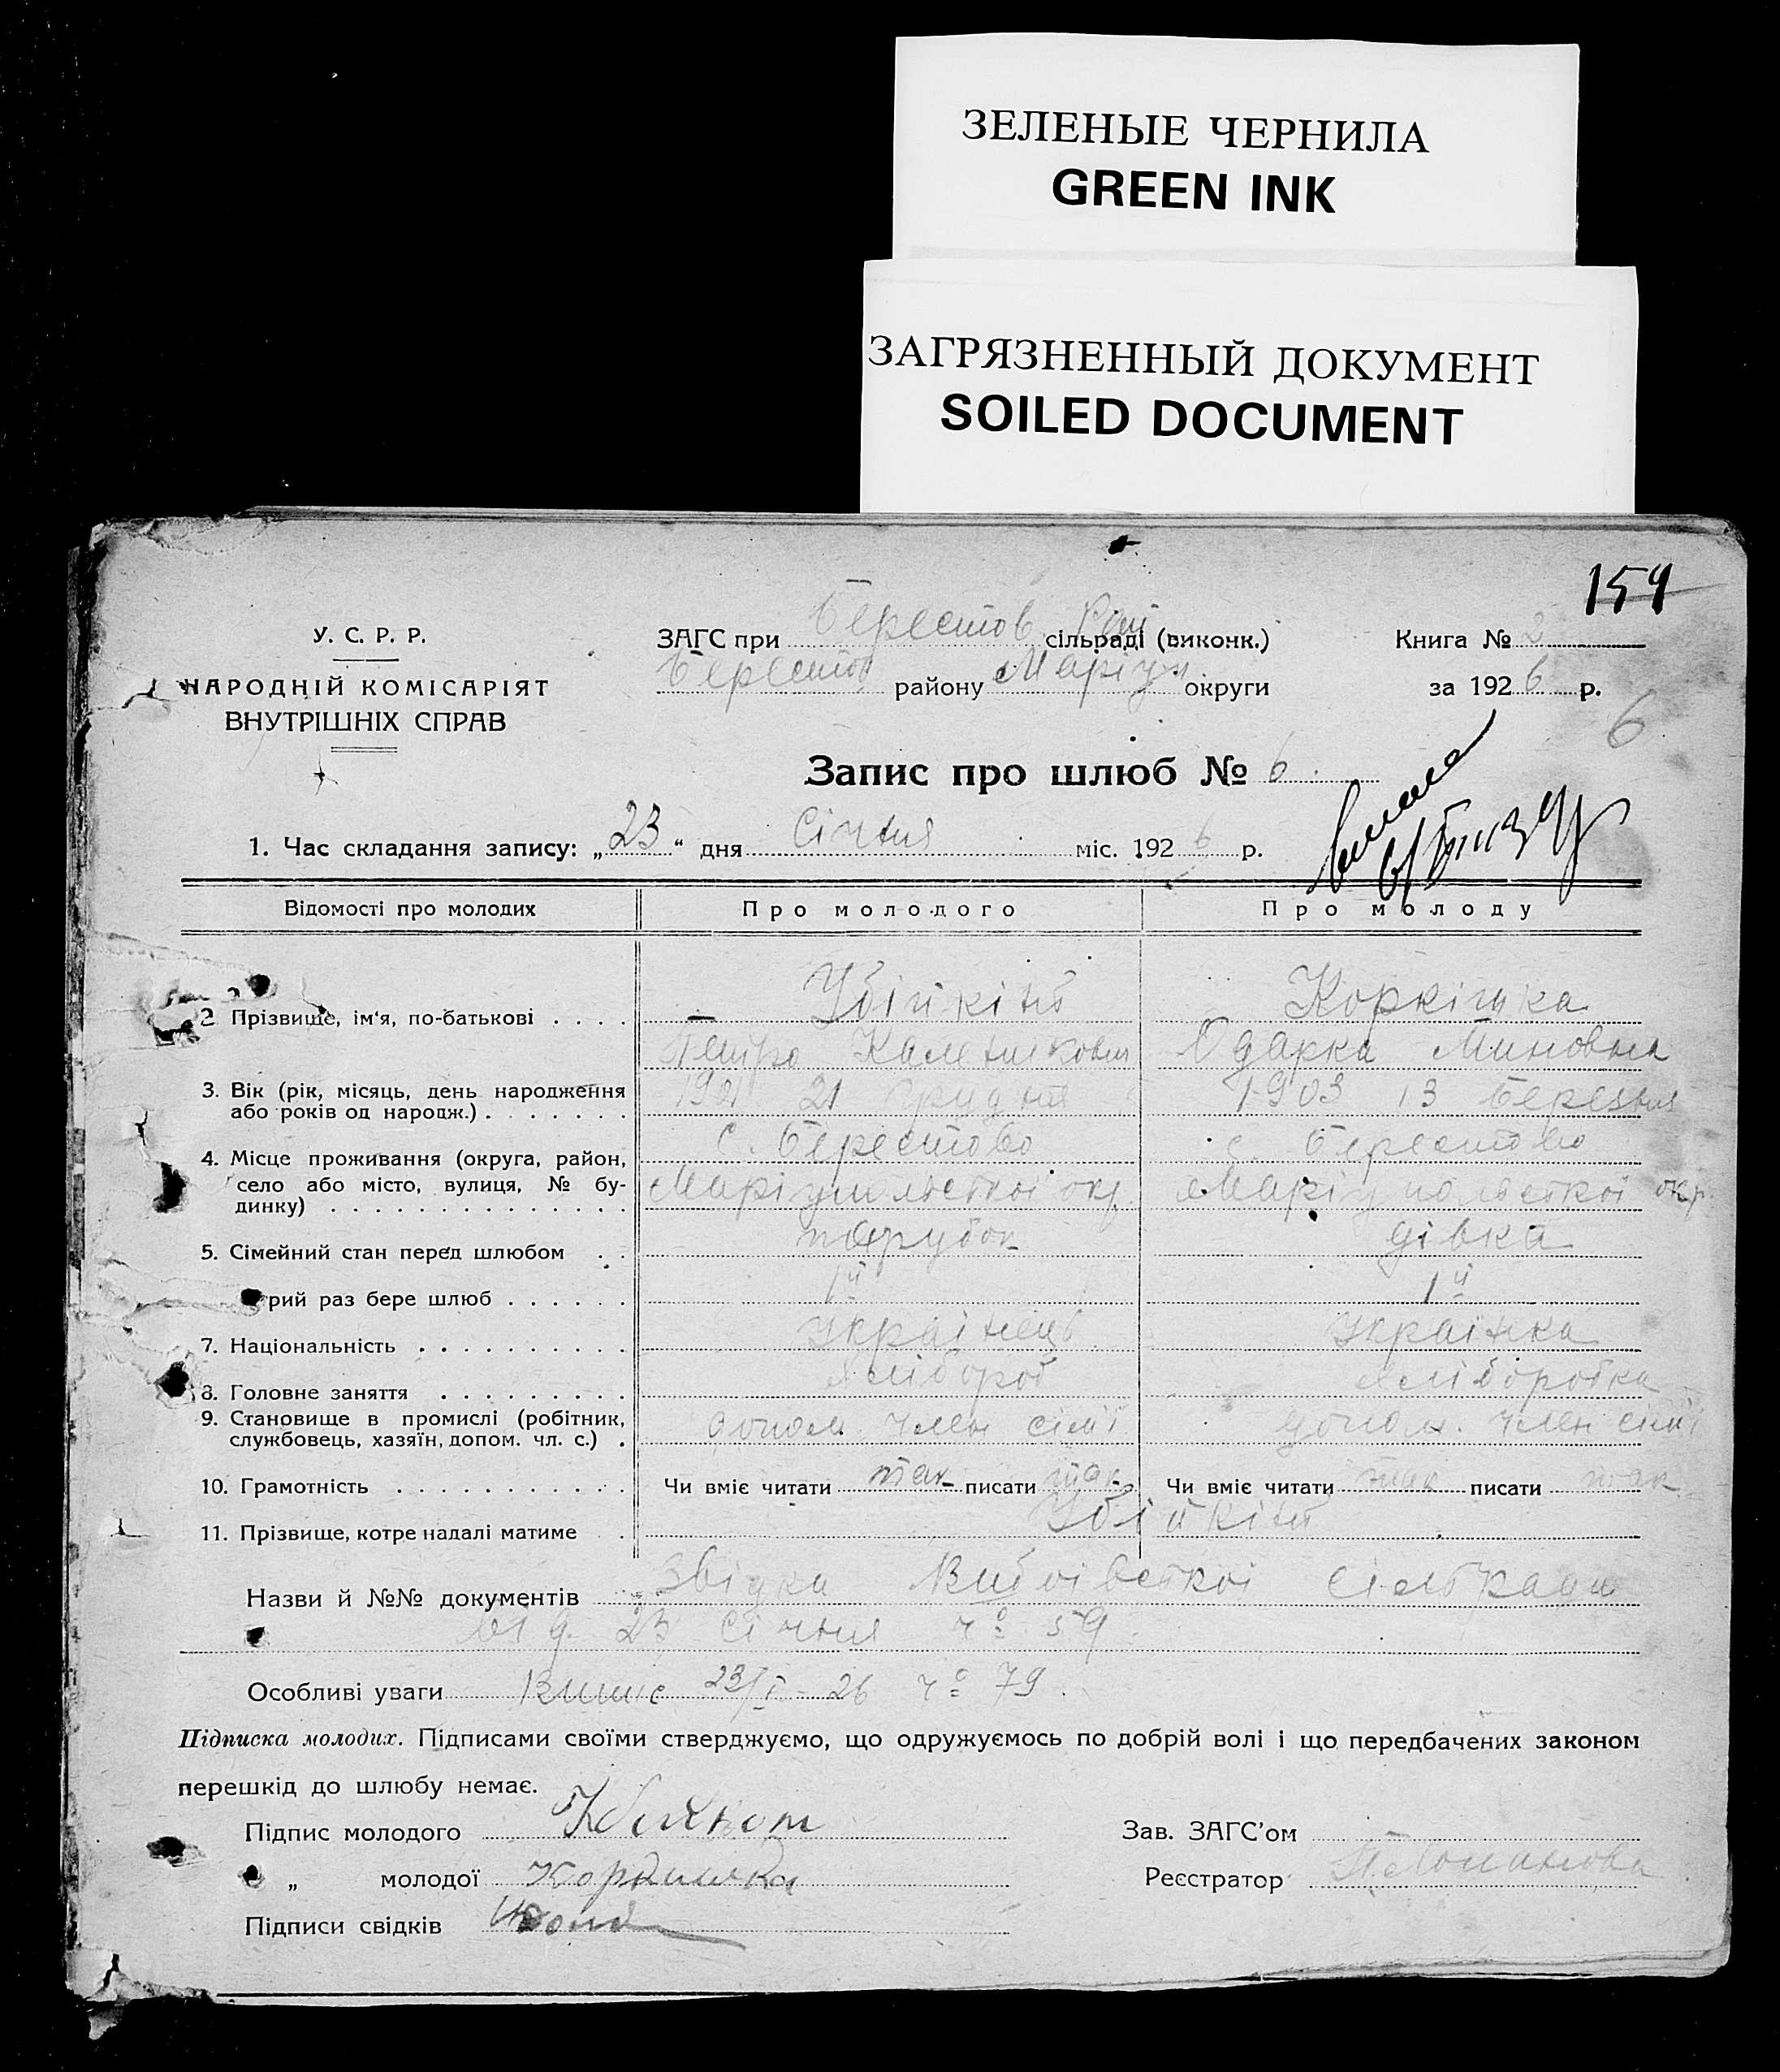 ЗЕЛЕНЫЕ ЧЕРНИЛА
GREEN INK
ЗАГРЯЗНЕННЫЙ ДОКУМЕНТ
SOILED DOCUMENT
154
У. С. Р. Р.
НАРОДНІЙ КОМІСАРІЯТ
ВНУТРІШНІХ СПРАВ
ЗАГС при Берестов. Рай сільраді (виконк.)
Берестов району Маріуп. округи
Книга № 2
за 1926 р.
6
Запис про шлюб № 6.
1. Час складання запису: „23“ дня Січня міс. 1926 р.
Відомості про молодих Про молодого Про молоду
2. Прізвище, ім‘я, по-батькові . . . . Убійкінь Коркішка
Петро Одарка Миновна
3. Вік (рік, місяць, день народження або років од народж.) . . . . . . . 21 Грудня 1903 13 Березня
4. Місце проживання (округа, район, село або місто, вулиця, № будинку) . . . . . . . . . . . . . . с. Берестово с. Берестово
Маріупольської окр. Маріупольської окр.
5. Сімейний стан перед шлюбом . . парубок дівка
рий раз бере шлюб . . . . . . 1й 1й
7. Національність . . . . . . . . . . Українець Українка
8. Головне заняття . . . . . . . . . хлібороб хліборобка
9. Становище в промислі (робітник, службовець, хазяїн, допом. чл. с.) . допом. член сім'ї допом. член сім'ї
10. Грамотність . . . . . . . . . . . Чи вміє читати так писати так Чи вміє читати так писати так
11. Прізвище, котре надалі матиме . Убійкінь
Назви й №№ документів Звідка сільради
від 23 Січня ч० 59.
Особливі уваги Випис 23/I - 26 ч० 79.
Підписка молодих. Підписами своїми стверджуємо, що одружуємось по добрій волі і що передбачених законом
перешкід до шлюбу немає.
Підпис молодого
Зав. ЗАГС’ом
„ молодої Коркишка
Реєстратор
Підписи свідків